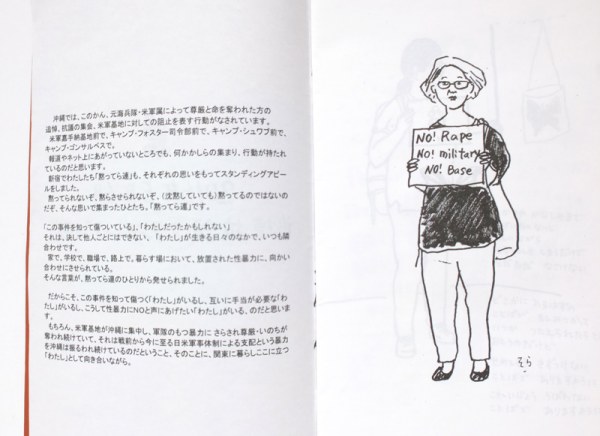 沖縄では、このかん、元海兵隊・米軍属によって尊厳と命を奪われた方の
追悼、抗議の集会、米軍基地に対しての阻止を表す行動がなされています。
米軍嘉手納基地前で、キャンプ・フォスター司令部前で、キャンプ・シュワブ前で、
キャンプ・ゴンサルベスで。
報道やネット上にあがっていないところでも、何かかしらの集まり、行動が持たれ
ているのだと思います。
新宿でわたしたち「黙ってら連」も、それぞれの思いをもってスタンディングアピー
ルをしました。
黙ってられないぞ、黙らさせられないぞ、(沈黙していても)黙ってるのではないの
だぞ、そんな思いで集まったひとたち、「黙ってら連」です。
「この事件を知って傷ついている」、「わたしだったかもしれない」
それは、決して他人ごとにはできない、「わたし」が生きる日々のなかで、いつも隣
合わせです。
家で、学校で、職場で、路上で、暮らす場において、放置された性暴力に、向かい
合わせにさせられている。
そんな言葉が、黙ってら連のひとりから発せられました。
だからこそ、この事件を知って傷つく「わたし」がいるし、互いに手当が必要な「わ
たし」がいるし、こうして性暴力にNOと声にあげたい「わたし」がいる、のだと思いま
す。
もちろん、米軍基地が沖縄に集中し、軍隊のもつ暴力に さらされ尊厳・いのちが
奪われ続けていて、それは戦前から今に至る日米軍事体制による支配という暴力
を沖縄は振るわれ続けているのだということ、そのことに、関東に暮らしここに立つ
「わたし」として向き合いながら。
NO! Rape
NO! military
NO! Base
そら